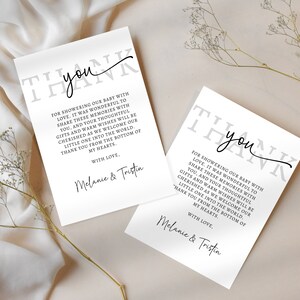 THANK
you
FOR SHOWERING OUR BABY WITH
LOVE. IT WAS WONDERFUL TO
SHARE THESE MEMORIES WITH
YOU, AND YOUR THOUGHTFUL
GIFTS AND WARM WISHES WILL BE
CHERISHED AS WE WELCOME OUR
LITTLE ONE INTO THE WORLD.
THANK YOU FROM THE BOTTOM OF
MY HEARTS.
WITH LOVE,
Melanie & Tristin
THANK
you
FOR SHOWERING OUR BABY WITH
LOVE. IT WAS WONDERFUL TO
SHARE THESE MEMORIES WITH
YOU, AND YOUR THOUGHTFUL
GIFTS AND WARM WISHES WILL BE
CHERISHED AS WE WELCOME OUR
LITTLE ONE INTO THE WORLD.
THANK YOU FROM THE BOTTOM OF
MY HEARTS.
WITH LOVE,
Melanie & Tristin